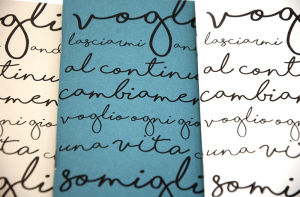 vogli
and
continu
omen
gni gio
ita
igli
vogli
lasciarmi and
al continu
cambiamen
voglio ogni gio
una vita
somigli
lasciarmi
al contin
cambiam
voglio ogni
una vita
somig